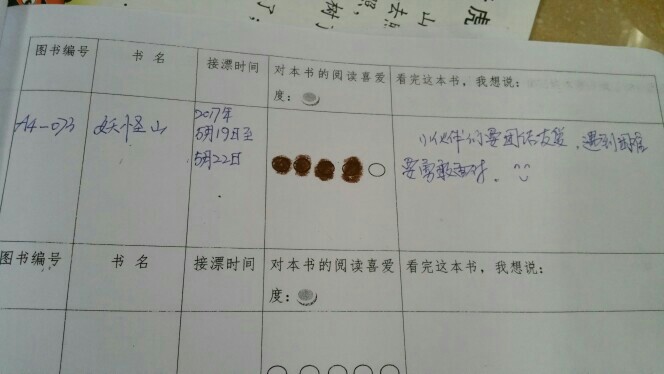 虎
山
去
照，
树
了；
图书编号 书 名 接漂时间 对本书的阅读喜爱度： 看完这本书，我想说：
A4-073 妖怪山 2017年5月19日至5月22日 小伙伴们要团结友爱，遇到困难
要勇敢面对。
图书编号 书 名 接漂时间 对本书的阅读喜爱度： 看完这本书，我想说：